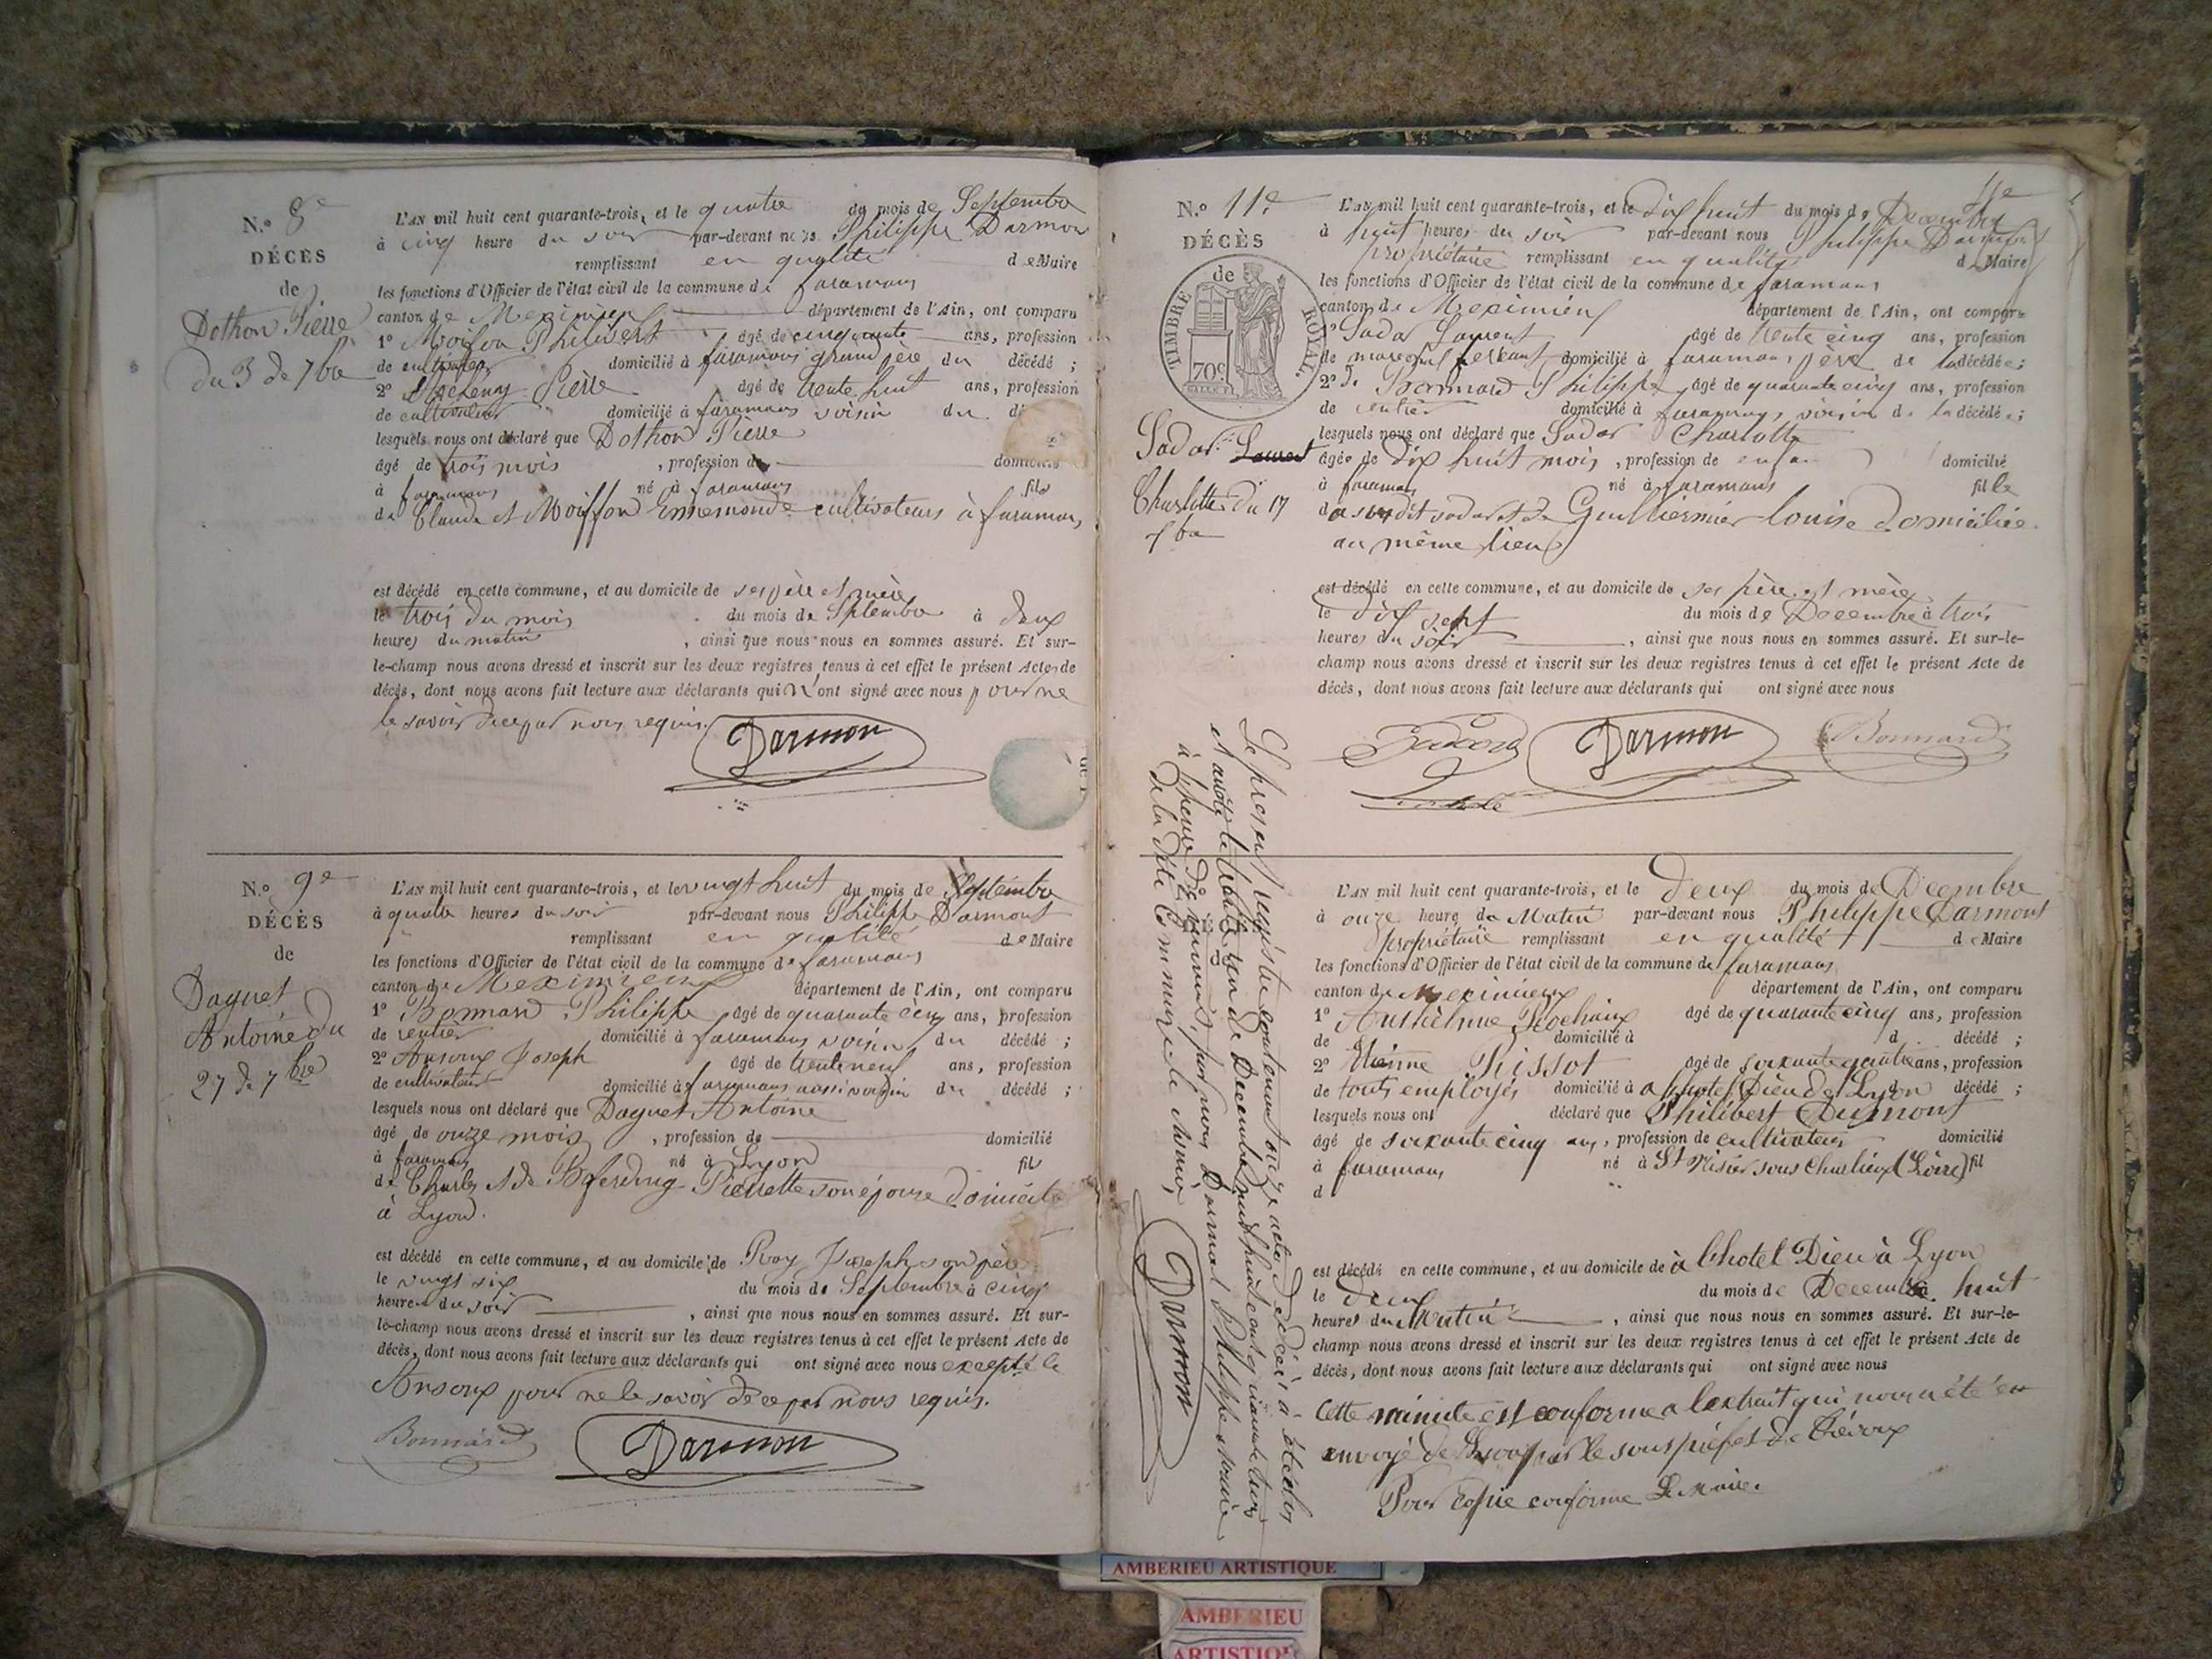 N.º 8e
DÉCÈS
de
Dothon Pierre
du 3 de 7bre
L'AN mil huit cent quarante-trois, et le quatre du mois de Septembre
à cinq heure du soir par-devant nous Philippe Darmon
remplissant en qualité de Maire
les fonctions d'Officier de l'état civil de la commune de faramans
canton de Meximieux département de l'Ain, ont comparu
1º Moiffon Philibert âgé de cinquante ans, profession
de cultivateur domicilié à faramans grand père du décédé ;
2º Pierre âgé de trente huit ans, profession
de cultivateur domicilié à faramans voisin du dé
lesquels nous ont déclaré que Dothon Pierre
âgé de trois mois , profession de domicilié
à faramans né à faramans fils
de Claude et Moiffon Ennemonde cultivateurs à faramans
est décédé en cette commune, et au domicile de ses père et mère
le trois du mois du mois de Septembre à deux
heures du matin , ainsi que nous nous en sommes assuré. Et sur-
le-champ nous avons dressé et inscrit sur les deux registres tenus à cet effet le présent Acte de
décès, dont nous avons fait lecture aux déclarants qui n'ont signé avec nous pour ne
le savoir de ce par nous requis.
Darmon
N.º 9e
DÉCÈS
de
Daguet
Antoine du
27 de 7bre
L'AN mil huit cent quarante-trois, et le vingt huit du mois de Septembre
à quatre heures du soir par-devant nous Philippe Darmont
remplissant en qualité de Maire
les fonctions d'Officier de l'état civil de la commune de faramans
canton de Meximieux département de l'Ain, ont comparu
1º Bonnard Philippe âgé de quarante cinq ans, profession
de rentier domicilié à faramans voisin du décédé ;
2º Ansoux Joseph âgé de trente neuf ans, profession
de cultivateur domicilié à faramans aussi voisin du décédé ;
lesquels nous ont déclaré que Daguet Antoine
âgé de onze mois , profession de domicilié
à faramans né à Lyon fils
de Charles et de Pierrette son épouse domicilié
à Lyon.
est décédé en cette commune, et au domicile de Roy Joseph son père
le vingt six du mois de Septembre à cinq
heures du soir , ainsi que nous nous en sommes assuré. Et sur-
le-champ nous avons dressé et inscrit sur les deux registres tenus à cet effet le présent Acte de
décès, dont nous avons fait lecture aux déclarants qui ont signé avec nous excepté le
Ansoux pour ne le savoir de ce par nous requis.
Bonnard Darmon
11e
N.º 11e
DÉCÈS
de
TIMBRE ROYAL.
70c
Sadar Laurent
Charlotte du 17
L'AN mil huit cent quarante-trois, et le dix huit du mois de Décembre
à huit heures du soir par-devant nous Philippe Darmon
propriétaire remplissant en qualité de Maire
les fonctions d'Officier de l'état civil de la commune de faramans
canton de Meximieux département de l'Ain, ont comparu
1º Sadar Laurent âgé de trente cinq ans, profession
de marechal ferrant domicilié à faramans père de la décédée ;
2º Bonnard Philippe âgé de quarante cinq ans, profession
de rentier domicilié à faramans voisin de la décédée ;
lesquels nous ont déclaré que Sadar Charlotte
âgée de dix huit mois , profession de domicilié
à faramans né à faramans fille
du susdit sadar et de Guilliermier louise domiciliée
au même lieu
est décédé en cette commune, et au domicile de ses père et mère
le dix sept du mois de Decembre à trois
heures du soir , ainsi que nous nous en sommes assuré. Et sur-le-
champ nous avons dressé et inscrit sur les deux registres tenus à cet effet le présent Acte de
décès, dont nous avons fait lecture aux déclarants qui ont signé avec nous
Sadar Darmon Bonnard
Le présent registre contenant onze actes de décès a été clos
et arrêté le trente un de Decembre mil huit cent quarante trois
à heure de minuit, par nous Darmont Philippe maire
de la dite Commune le Maire,
Darmon
L'AN mil huit cent quarante-trois, et le deux du mois de Decembre
à onze heure du Matin par-devant nous Philippe Darmont
propriétaire remplissant en qualité de Maire
les fonctions d'Officier de l'état civil de la commune de faramans
canton de Meximieux département de l'Ain, ont comparu
1º Anthelme âgé de quarante cinq ans, profession
de domicilié à d décédé ;
2º Etienne Pissot âgé de soixante quatre ans, profession
de touts employés domicilié à a lhotel Dieu de Lyon d décédé ;
lesquels nous ont déclaré que Philibert Dumont
âgé de soixante cinq ans, profession de cultivateur domicilié
à faramans né à St Nisier sous Charlieux (Loire) fil
d
est décédé en cette commune, et au domicile de à lhotel Dieu à Lyon
le deux du mois de Decembre. huit
heures du Matin , ainsi que nous nous en sommes assuré. Et sur-le-
champ nous avons dressé et inscrit sur les deux registres tenus à cet effet le présent Acte de
décès, dont nous avons fait lecture aux déclarants qui ont signé avec nous
Cette minute est conforme a lextrait qui nous a été
envoyé de Lyon par le sous préfet de Trévoux
Pour Copie conforme Le Maire.
AMBERIEU ARTISTIQUE
AMBERIEU
ARTISTIQUE